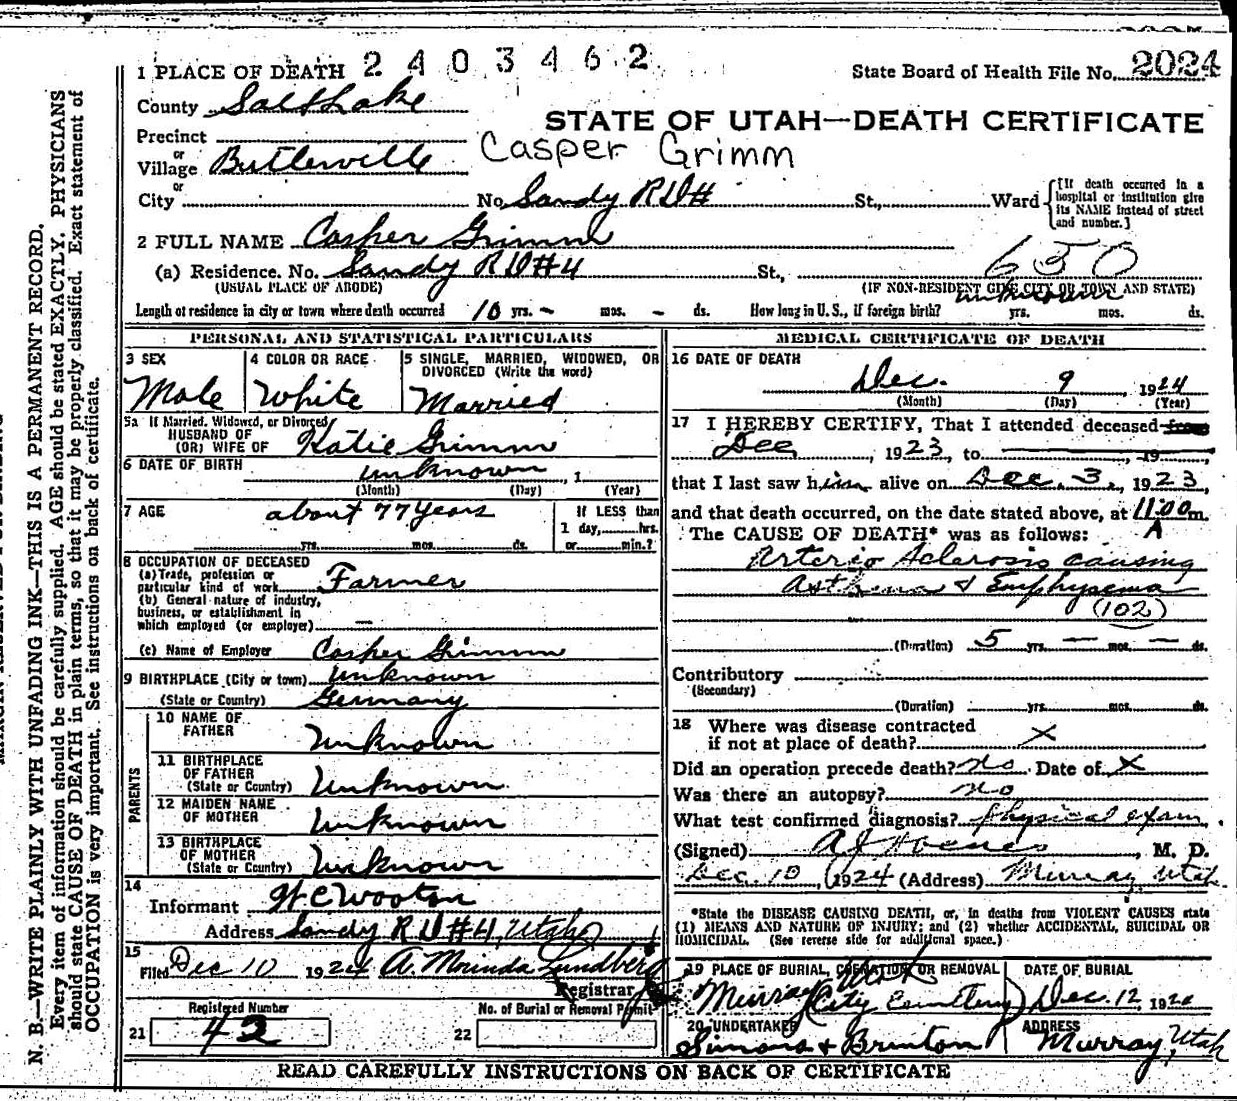 1 PLACE OF DEATH 2 4 0 3 4 6 2 State Board of Health File No. 2024
County Salt Lake
STATE OF UTAH—DEATH CERTIFICATE
Precinct
Casper Grimm
or
Village Butlerville
or
City No. Sandy R D # St., Ward {[If death occurred in a hospital or institution give its NAME instead of street and number.]
2 FULL NAME Casper Grimm
(a) Residence. No. Sandy R D #4 St., 650
(USUAL PLACE OF ABODE) (IF NON-RESIDENT GIVE CITY OR TOWN AND STATE)
unknown
Length of residence in city or town where death occurred 10 yrs. – mos. – ds. How long in U.S., if foreign birth? yrs. mos. ds.
PERSONAL AND STATISTICAL PARTICULARS
3 SEX 4 COLOR OR RACE 5 SINGLE, MARRIED, WIDOWED, OR DIVORCED (Write the word)
Male White Married
5a If Married, Widowed, or Divorced
HUSBAND OF
(OR) WIFE OF Katie Grimm
6 DATE OF BIRTH unknown , 1
(Month) (Day) (Year)
7 AGE about 77 Years If LESS than
1 day, hrs.
yrs. mos. ds. or min.?
8 OCCUPATION OF DECEASED
(a) Trade, profession or
particular kind of work Farmer
(b) General nature of industry,
business, or establishment in
which employed (or employer) —
(c) Name of Employer Casper Grimm
9 BIRTHPLACE (City or town) Unknown
(State or Country) Germany
PARENTS
10 NAME OF
FATHER Unknown
11 BIRTHPLACE
OF FATHER
(State or Country) Unknown
12 MAIDEN NAME
OF MOTHER Unknown
13 BIRTHPLACE
OF MOTHER
(State or Country) Unknown
14
Informant W C Wooton
Address Sandy R D #4, Utah
15
Filed Dec 10 1924 A. Morinda Lundberg
Registrar
Registered Number No. of Burial or Removal Permit
21 42 22
MEDICAL CERTIFICATE OF DEATH
16 DATE OF DEATH
Dec. 9 1924
(Month) (Day) (Year)
17 I HEREBY CERTIFY, That I attended deceased from
Dec , 1923, to , 19
that I last saw him alive on Dec. 3, 1923,
and that death occurred, on the date stated above, at 11:00 m.
The CAUSE OF DEATH* was as follows: A
Arterio Sclerosis causing
Asthma & Emphysema
(102)
(Duration) 5 yrs. — mos. — ds.
Contributory
(Secondary)
(Duration) yrs. mos. ds.
18 Where was disease contracted
if not at place of death? X
Did an operation precede death? no Date of X
Was there an autopsy? no
What test confirmed diagnosis? physical exam.
(Signed) , M. D.
Dec. 10, 1924 (Address) Murray, Utah.
*State the DISEASE CAUSING DEATH, or, in deaths from VIOLENT CAUSES state
(1) MEANS AND NATURE OF INJURY; and (2) whether ACCIDENTAL, SUICIDAL OR
HOMICIDAL. (See reverse side for additional space.)
19 PLACE OF BURIAL, CREMATION OR REMOVAL DATE OF BURIAL
Murray City Cemetery Utah Dec. 12, 192
20 UNDERTAKER ADDRESS
Simons & Brinton Murray, Utah
READ CAREFULLY INSTRUCTIONS ON BACK OF CERTIFICATE
N. B.—WRITE PLAINLY WITH UNFADING INK—THIS IS A PERMANENT RECORD.
Every item of information should be carefully supplied. AGE should be stated EXACTLY. PHYSICIANS
should state CAUSE OF DEATH in plain terms, so that it may be properly classified. Exact statement of
OCCUPATION is very important. See instructions on back of certificate.